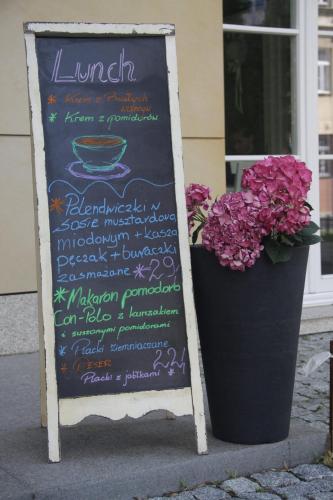 Lunch
* Krem z Białych
warzyw
* Krem z pomidorów
* Polendwiczki w
sosie musztardowo
miodowym + kasza
pęczak + buraczki
zasmażane * 29
* Makaron pomodoro
Con-Polo z kurczakiem
i suszonymi pomidorami
* Placki ziemniaczane
* DESER 22
Placki z jabłkami *